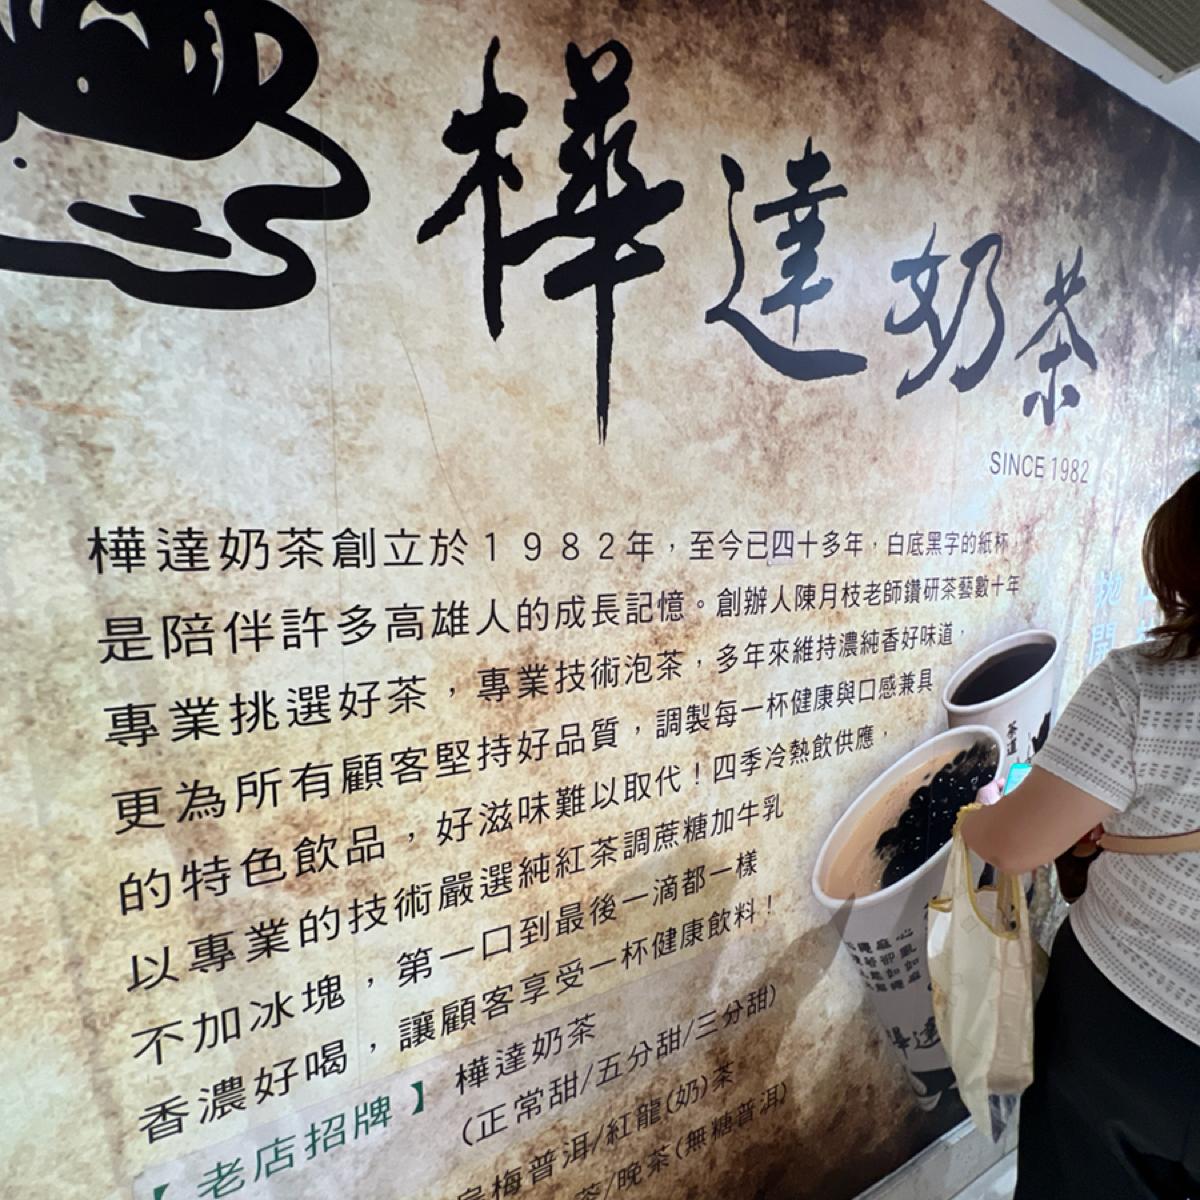 樺達奶茶
SINCE 1982
樺達奶茶創立於1982年，至今已四十多年，白底黑字的紙杯，
是陪伴許多高雄人的成長記憶。創辦人陳月枝老師鑽研茶藝數十年
專業挑選好茶，專業技術泡茶，多年來維持濃純香好味道，
更為所有顧客堅持好品質，調製每一杯健康與口感兼具
的特色飲品，好滋味難以取代！四季冷熱飲供應，
以專業的技術嚴選純紅茶調蔗糖加牛乳
不加冰塊，第一口到最後一滴都一樣
香濃好喝，讓顧客享受一杯健康飲料！
【老店招牌】樺達奶茶
(正常甜/五分甜/三分甜)
烏梅普洱/紅龍(奶)茶
茶/晚茶(無糖普洱)
茶道
樺達